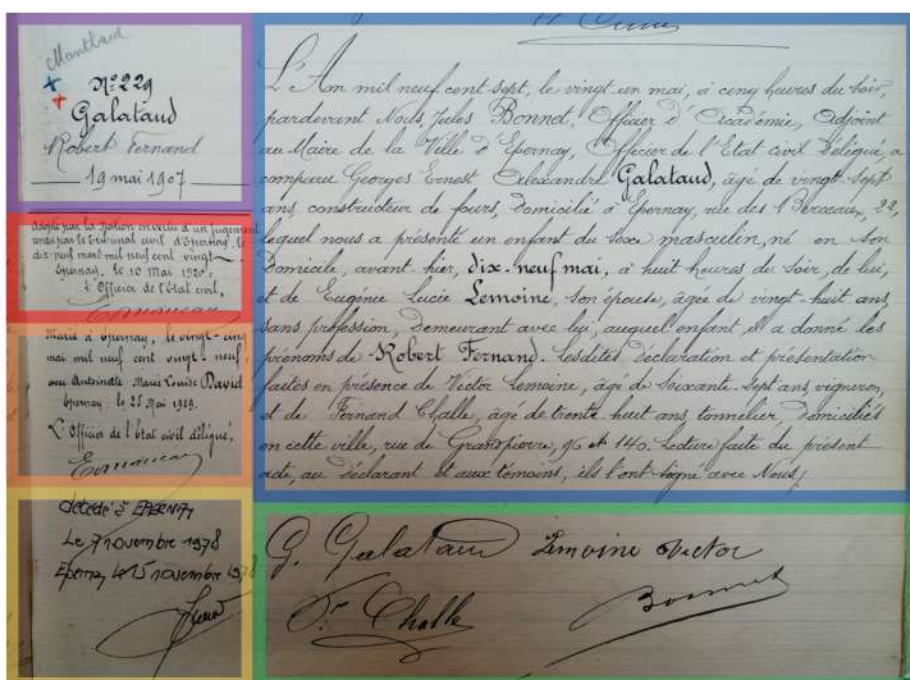 Montbard
N° 229
Galataud
Robert Fernand
19 mai 1907
Adopté par la Nation en vertu d'un jugement
rendu par le Tribunal civil d'Épernay, le
dix-neuf mars mil neuf cent vingt
Épernay, le 10 Mai 1920
L'Officier de l'état civil,
Marié à Épernay, le vingt-cinq
mai mil neuf cent vingt-neuf,
avec Antoinette Marie Louise David
Épernay le 25 Mai 1929.
L'Officier de l'état civil délégué,
décédé à EPERNAY
Le 7 novembre 1978
Epernay le 15 novembre 1978
L'An mil neuf cent sept, le vingt un mai, à cinq heures du soir,
pardevant Nous, Jules Bonnet, Officier d'Académie, Adjoint
au Maire de la Ville d'Epernay, Officier de l'Etat civil délégué, a
comparu Georges Ernest Alexandre Galataud, âgé de vingt-sept
ans, constructeur de fours, domicilié à Epernay, rue des Berceaux, 22,
lequel nous a présenté un enfant du sexe masculin, né en son
domicile, avant-hier, dix-neuf mai, à huit heures du soir, de lui,
et de Eugénie Lucie Lemoine, son épouse, âgée de vingt-huit ans,
sans profession, demeurant avec lui, auquel enfant il a donné les
prénoms de Robert Fernand. Lesdites déclaration et présentation
faites en présence de Victor Lemoine, âgé de soixante-sept ans, vigneron,
et de Fernand Challe, âgé de trente huit ans, tonnelier, domiciliés
en cette ville, rue de Grandpierre, 96 et 140. Lecture faite du présent
acte, au déclarant et aux témoins, ils l'ont signé avec Nous,
G. Galataud Lemoine Victor
F. Challe Bonnet